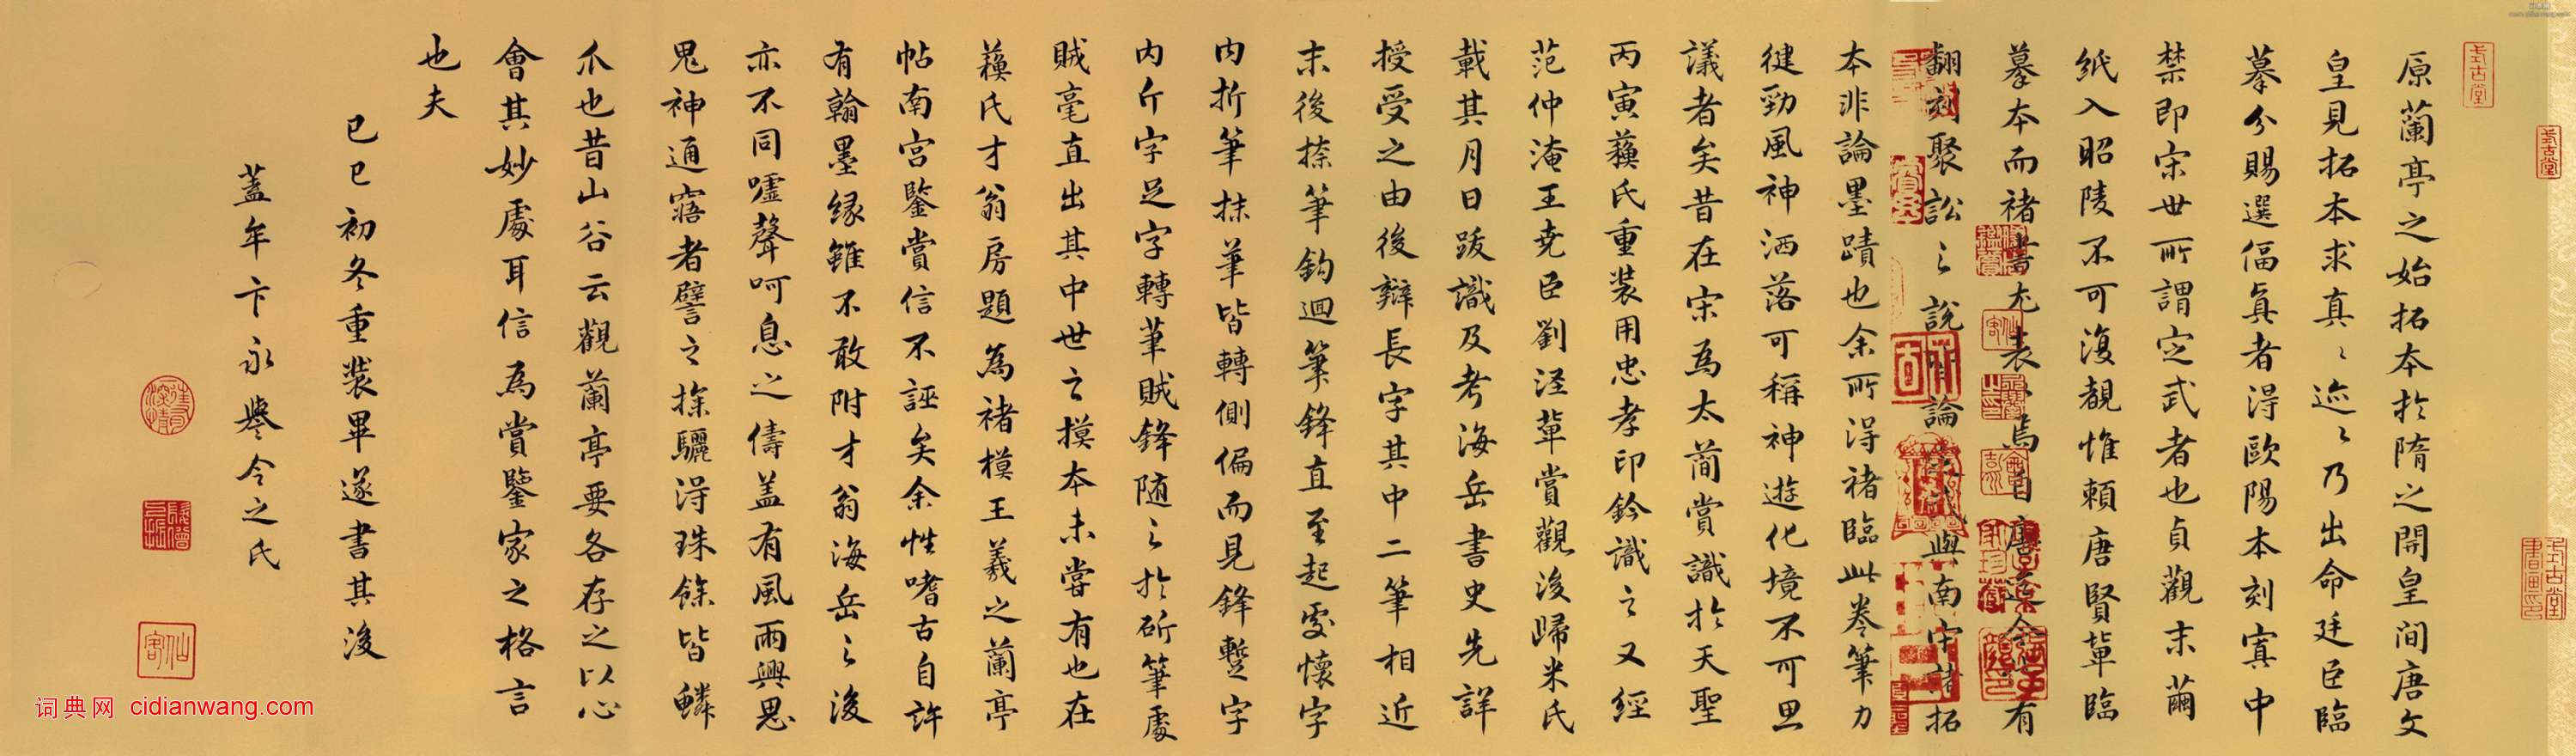 原蘭亭之始拓本於隋之開皇间唐文
皇見拓本求真〻迹〻乃出命廷臣臨
摹分賜選偪眞者淂歐陽本刻寘中
禁即宋世所謂定武者也貞觀末繭
紙入昭陵不可復覩惟頼唐賢軰臨
摹本而褚書尤表〻焉自唐迄今有
翻刻聚訟〻說有論定武與南宋諸拓
本非論墨蹟也余所淂褚臨此卷筆力
徤勁風神洒落可稱神遊化境不可思
議者矣昔在宋為太蕳賞識於天聖
丙寅蘓氏重装用忠孝印鈐識之又經
范仲淹王尭臣劉涇軰賞觀後歸米氏
載其月日䟦識及考海岳書史先詳
授受之由後辯長字其中二筆相近
末後捺筆鈎迴筆鋒直至起處懷字
内折筆抹筆皆轉側偏而見鋒蹔字
内斤字足字轉筆賊鋒随之於斫筆處
賊毫直出其中世之摸本未嘗有也在
蘓氏才翁房題為褚模王羲之蘭亭
帖南宫鑒賞信不誣矣余性嗜古自許
有翰墨緣雖不敢附才翁海岳之後
亦不同嘘聲呵息之儔盖有風雨興思
鬼神通寤者譬之探驪淂珠餘皆鱗
爪也昔山谷云觀蘭亭要各存之以心
會其妙處耳信為賞鑒家之格言
也夫
己巳初冬重裝畢遂書其後
蓋牟卞永譽令之氏
式古堂
式古堂
式古堂書畫印
仙客
词典网 cidianwang.com